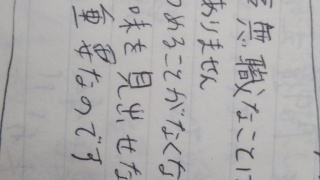 無職なことに
ありません
めることがなくな
味を見出せな
なのです